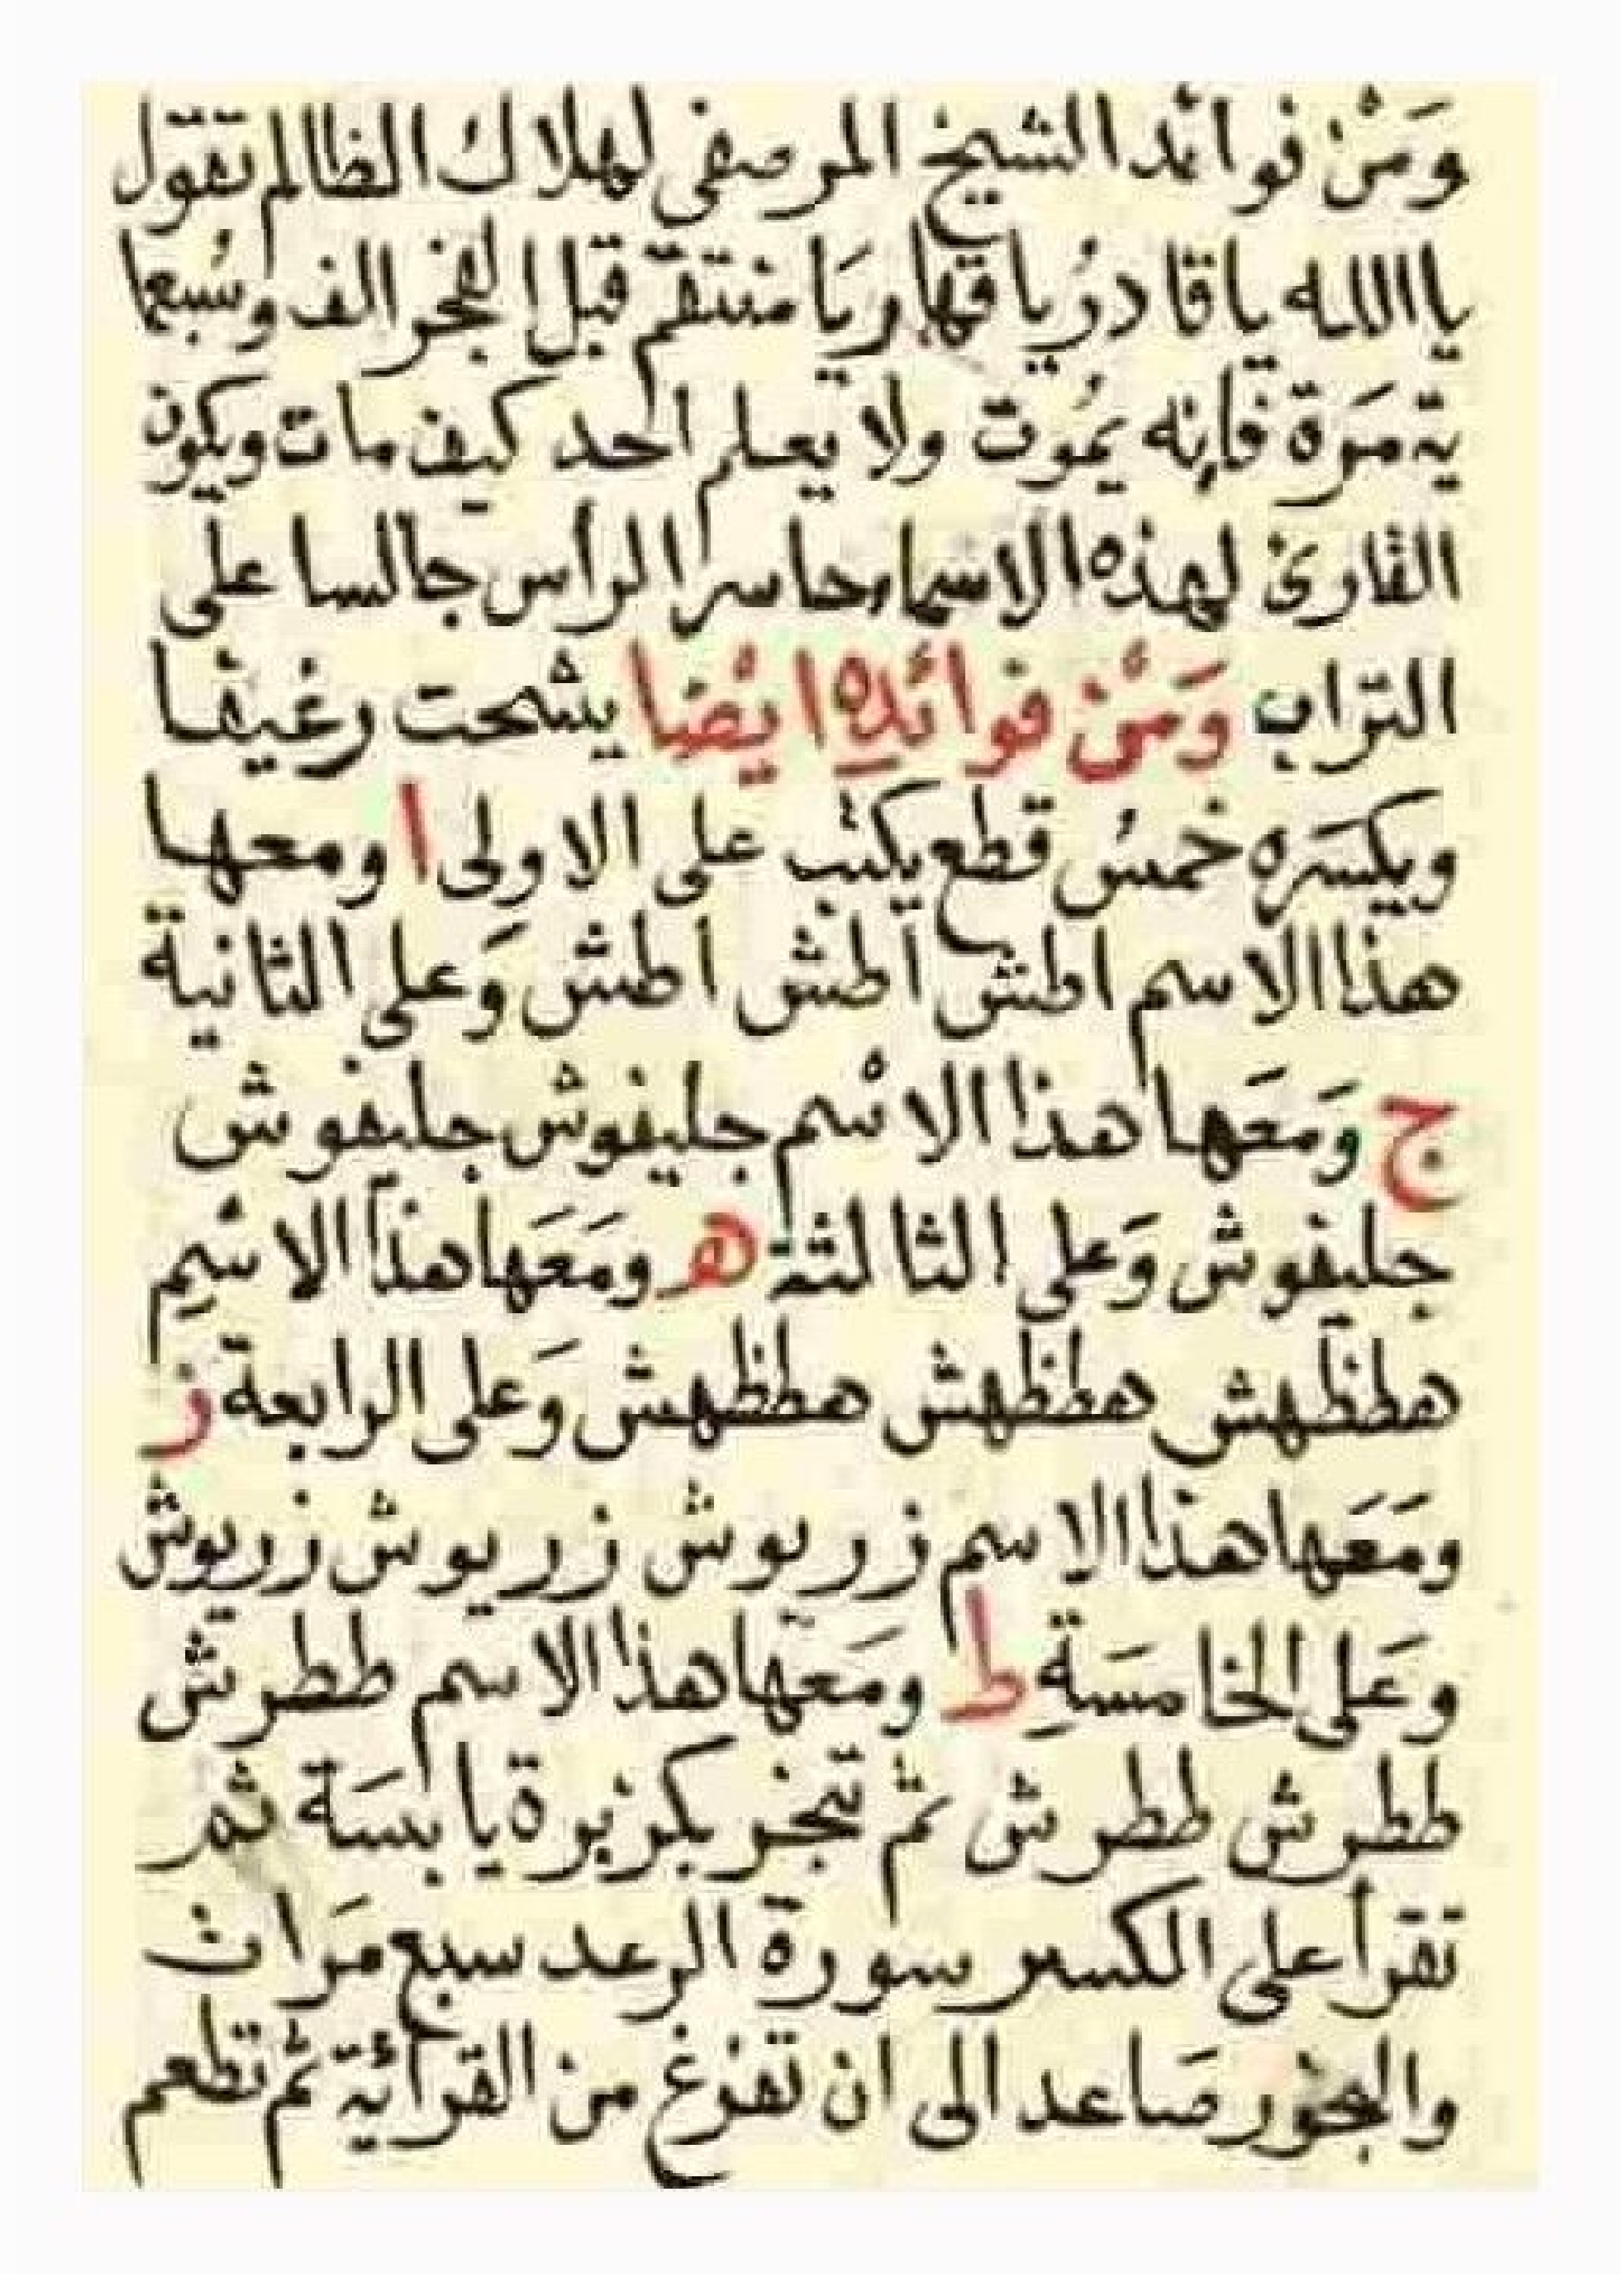 وَمِنْ فوائد الشيخ المرصفى لهلاك الظالم تقول
يا الله يا قادرُ يا قهار يَا منتقم قبل الفجر الف وسُبعما
ية مَرَة فإنه يمُوت ولا يعلم احد كيف مات ويكون
القارئ لهذه الاسماء حاسرا الرأس جالسا على
التراب وَمِنْ فوائدِه ايضا يشحت رغيفا
ويكسَره خمسُ قطع يكتب على الاولى ا ومعها
هذا الاسم اطش اطش اطش وَعلى الثانية
ج وَمَعَها هذا الاسْم جليفوش جليفوش
جليفوش وَعلى الثالثة هـ ومَعَها هذا الاسم
هطظهش هطظهش هطظهش وَعلى الرابعة ز
ومَعَها هذا الاسم زربوش زريوش زريوش
وعَلى الخامسَةِ ط ومَعَها هذا الاسم ططرش
ططرش ططرش ثم تبخر بكزبرة يابسَة ثم
تقرأ على الكسر سورة الرعد سبع مَرات
والبخور صَاعد الى ان تفرغ من القرائة ثم تطعم